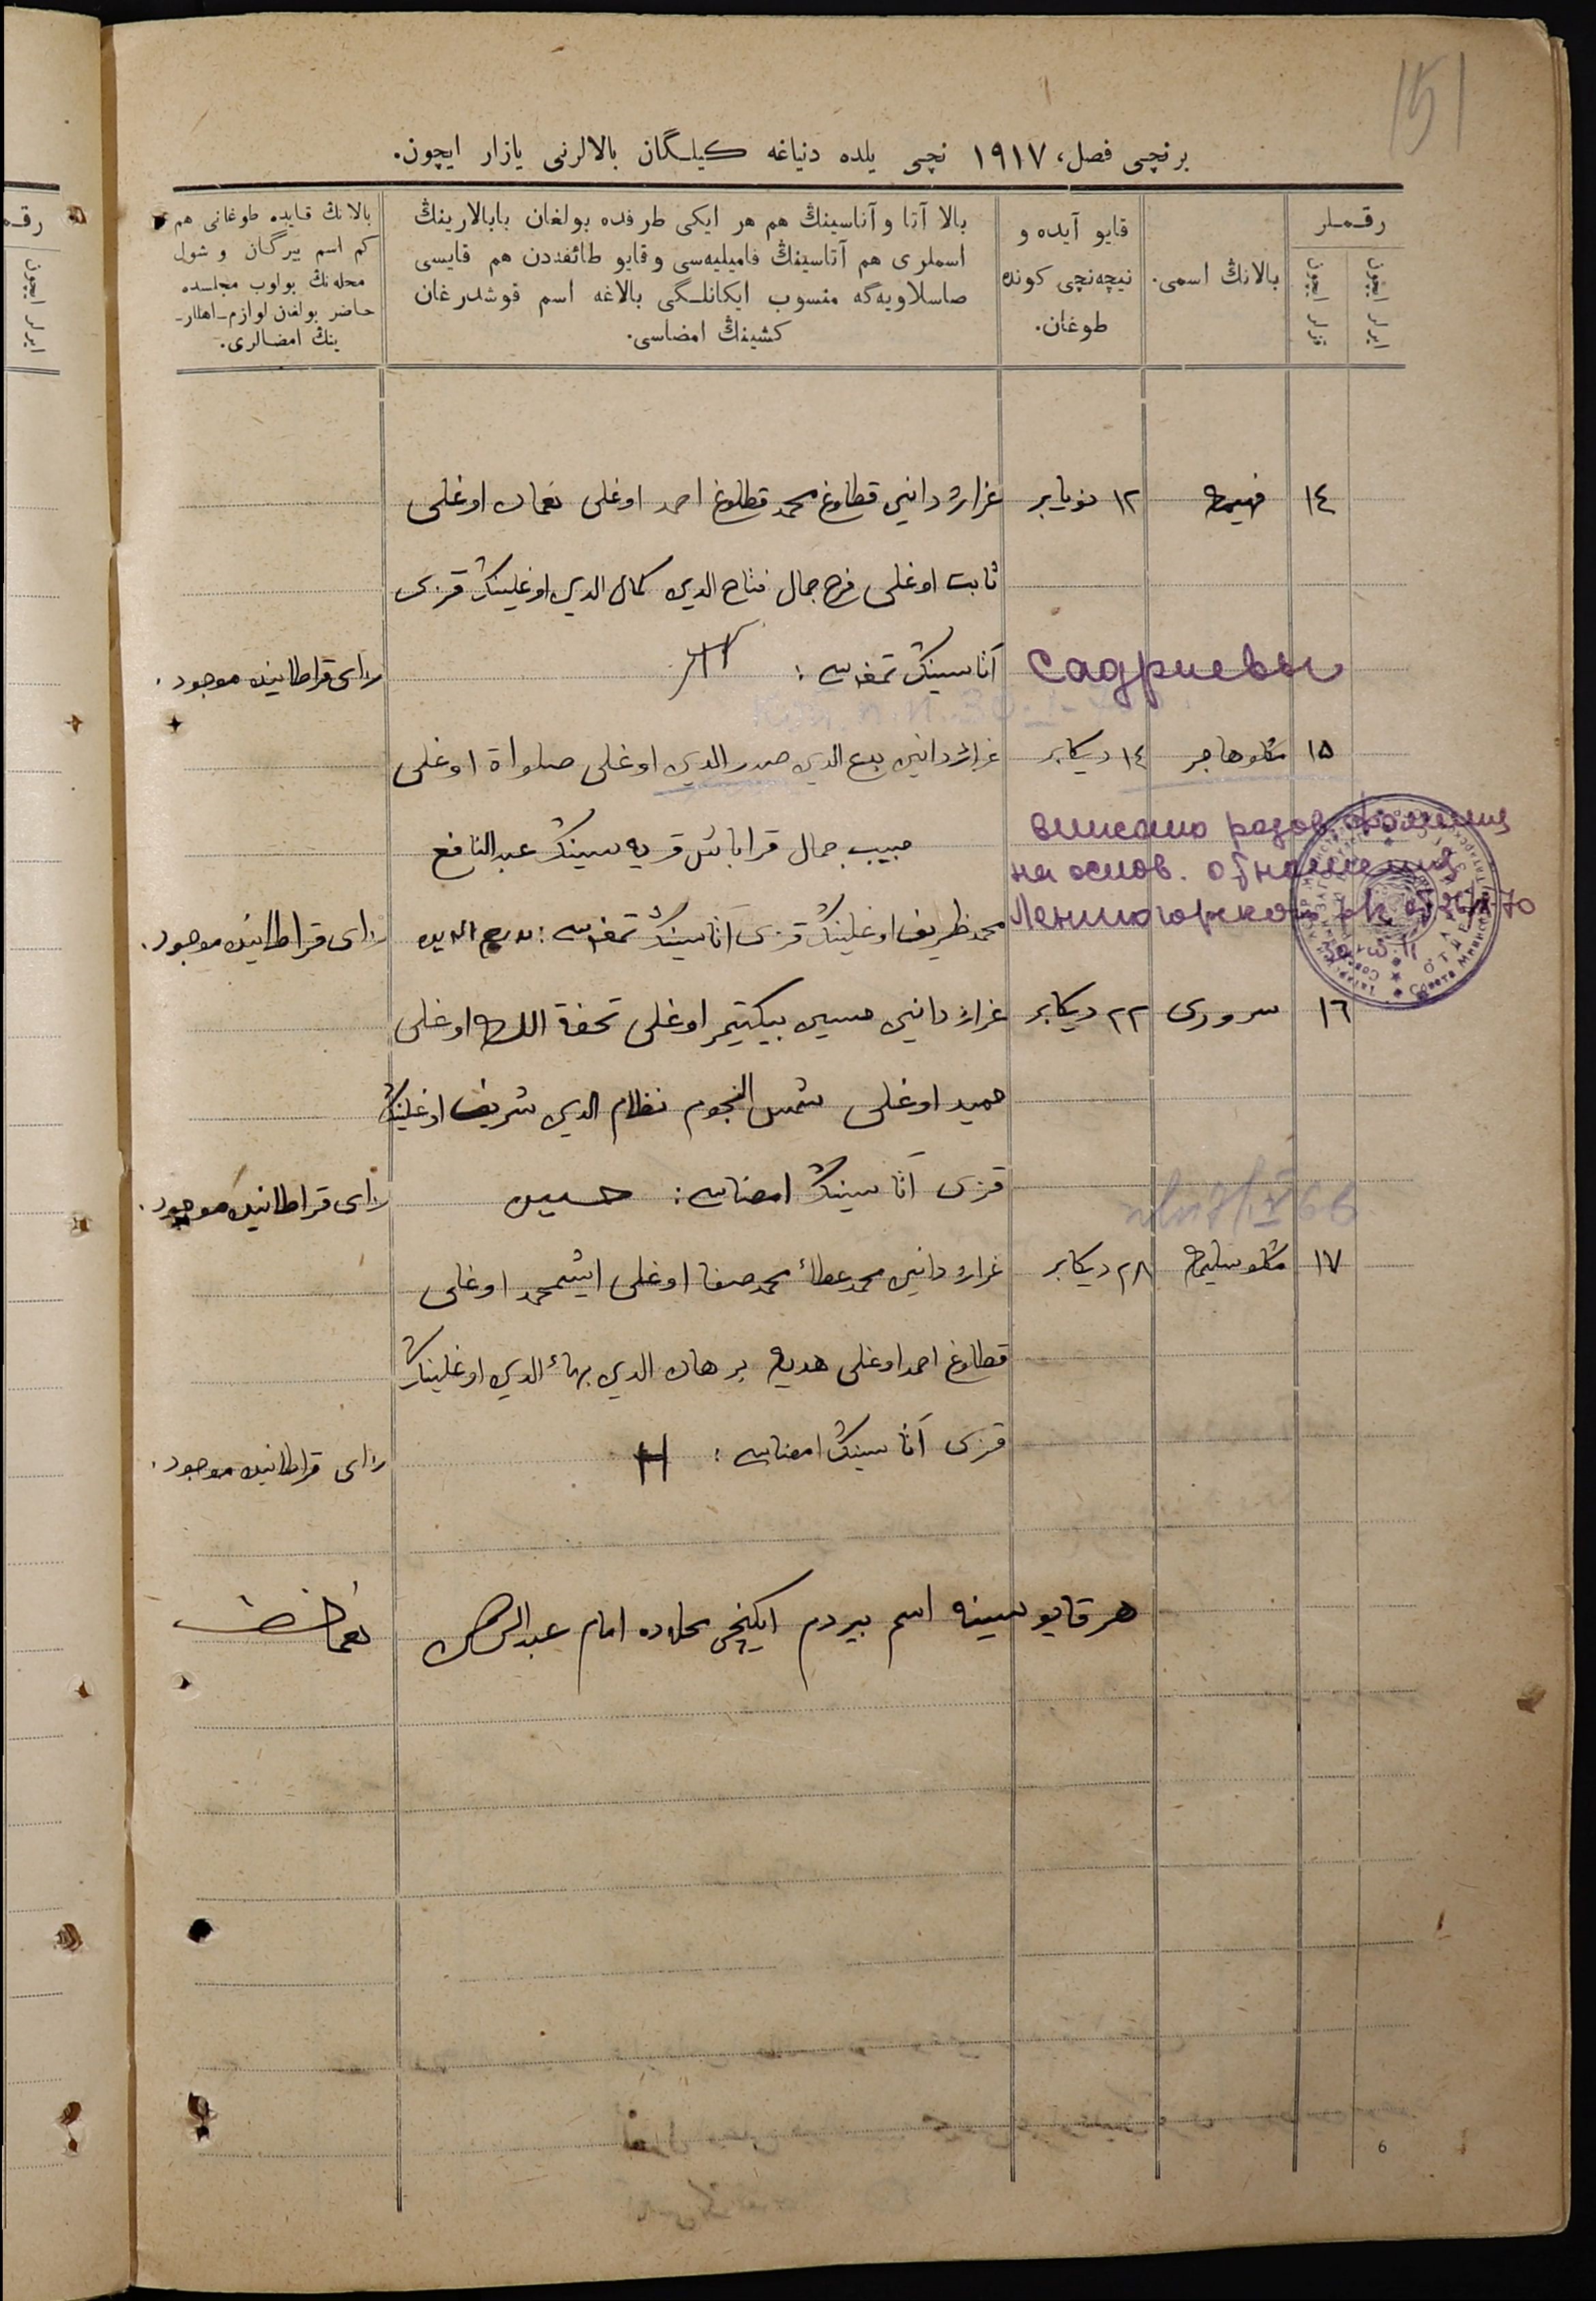 151
برنچی فصل، ١٩١٧ نچی یلده دنیاغه کیلگان بالالرنی یازار ایچون.
رقملر
ایرلر ایچون
قزلر ایچون
بالانڭ اسمی.
قایو آیده و
نیچه‌نچی کونده
طوغان.
بالا آتا و آناسینڭ هم هر ایکی طرفده بولغان بابالارینڭ
اسملری هم آتاسینڭ فامیلیه‌سی و قایو طائفه‌دن هم قایسی
صاسلاویه‌گه منسوب ایکانلگی بالاغه اسم قوشدرغان
کشینڭ امضاسی.
بالانڭ قایده طوغانی هم
کم اسم بیرگان و شول
محله‌نڭ بولوب مجلسده
حاضر بولغان لوازم-اهللر-
ینڭ امضالری.
١٤ فهیمه ١٢ نویابر غراژدانین قطلوغ محمد قطلوغ احمد اوغلی نعمان اوغلی
ثابت اوغلی فرح جمال فتاح الدین کمال الدین اوغلینڭ قزی
Садриевы آتاسینڭ تمغاسی:
رای قراطاینده موجود.
١٥ ١٤ دیکابر غراژدانین بدیع الدین صدر الدین اوغلی صلواة اوغلی
حبیب جمال قراباش قریه سینڭ عبد النافع
вписано разов. фамилия
на основ. отношения
Лениногорского
محمد ظریف اوغلینڭ قزی آتاسینڭ تمغاسی: بدیع الدین
رای قراطاینده موجود.
١٦ سروری ٢٢ دیکابر غراژدانین حسین بیکتیمر اوغلی تحفة الله اوغلی
حمید اوغلی شمس النجوم نظام الدین شریف اوغلینڭ
قزی آتاسینڭ امضاسی: حسین
رای قراطاینده موجود.
١٧ ٢٨ دیکابر غراژدانین محمد عطاء محمد صفا اوغلی ایشمحمد اوغلی
قطلوغ احمد اوغلی هدیه برهان الدین بهاء الدین اوغلینڭ
قزی آتاسینڭ امضاسی: H
رای قراطاینده موجود.
هر قایوسینه اسم بیردم ایکنچی محله‌ده امام عبد الرحمن
6